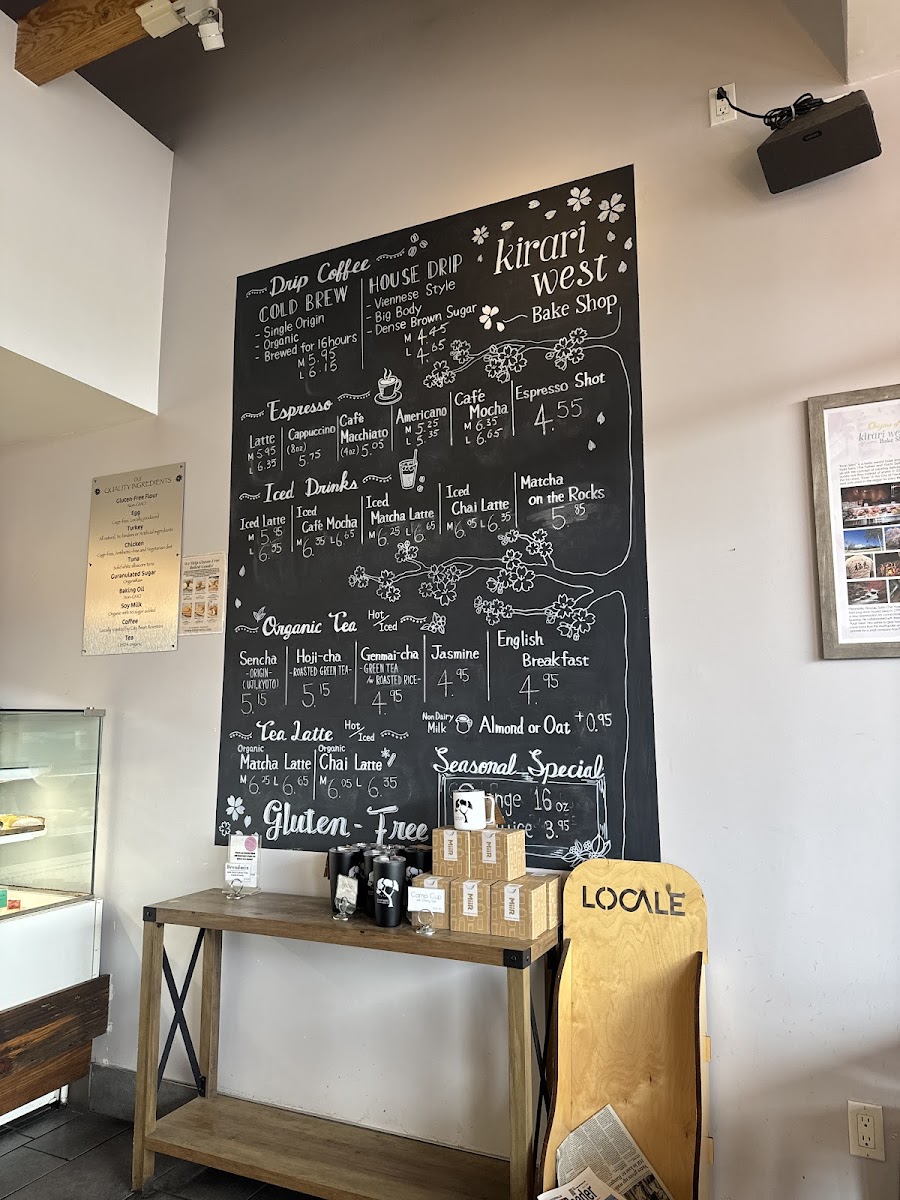 kirari
west
Bake Shop
Drip Coffee
COLD BREW
- Single Origin
- Organic
- Brewed for 16hours
M 5.95
L 6.15
HOUSE DRIP
- Viennese Style
- Big Body
- Dense Brown Sugar
M 4.45
L 4.65
Espresso
Latte
M 5.95
L 6.35
Cappuccino
(8oz)
5.75
Café
Macchiato
(4oz) 5.05
Americano
M 5.25
L 5.35
Café
Mocha
M 6.35
L 6.65
Espresso Shot
4.55
Iced Drinks
Iced Latte
M 5.95
L 6.35
Iced
Café Mocha
M 6.35 L 6.65
Iced
Matcha Latte
M 6.25 L 6.65
Iced
Chai Latte
M 6.05 L 6.35
Matcha
on the Rocks
5.85
Organic Tea Hot/Iced
Sencha
-ORIGIN-
(UJI, KYOTO)
5.15
Hoji-cha
-ROASTED GREEN TEA-
5.15
Genmai-cha
-GREEN TEA
w/ ROASTED RICE-
4.95
Jasmine
4.95
English
Breakfast
4.95
Tea Latte Hot/Iced
Organic
Matcha Latte
M 6.25 L 6.65
Organic
Chai Latte
M 6.05 L 6.35
Non Dairy
Milk
Almond or Oat +0.95
Seasonal Special
16 oz
3.95
Gluten-Free
OUR
QUALITY INGREDIENTS
Gluten-Free Flour
Non-GMO
Egg
Turkey
Chicken
Tuna
Guranulated Sugar
Baking Oil
Non-GMO
Soy Milk
Organic with no sugar added
Coffee
Tea
kirari we
MiiR
MiiR
MiiR
MiiR
Camp Cup
LOCALE